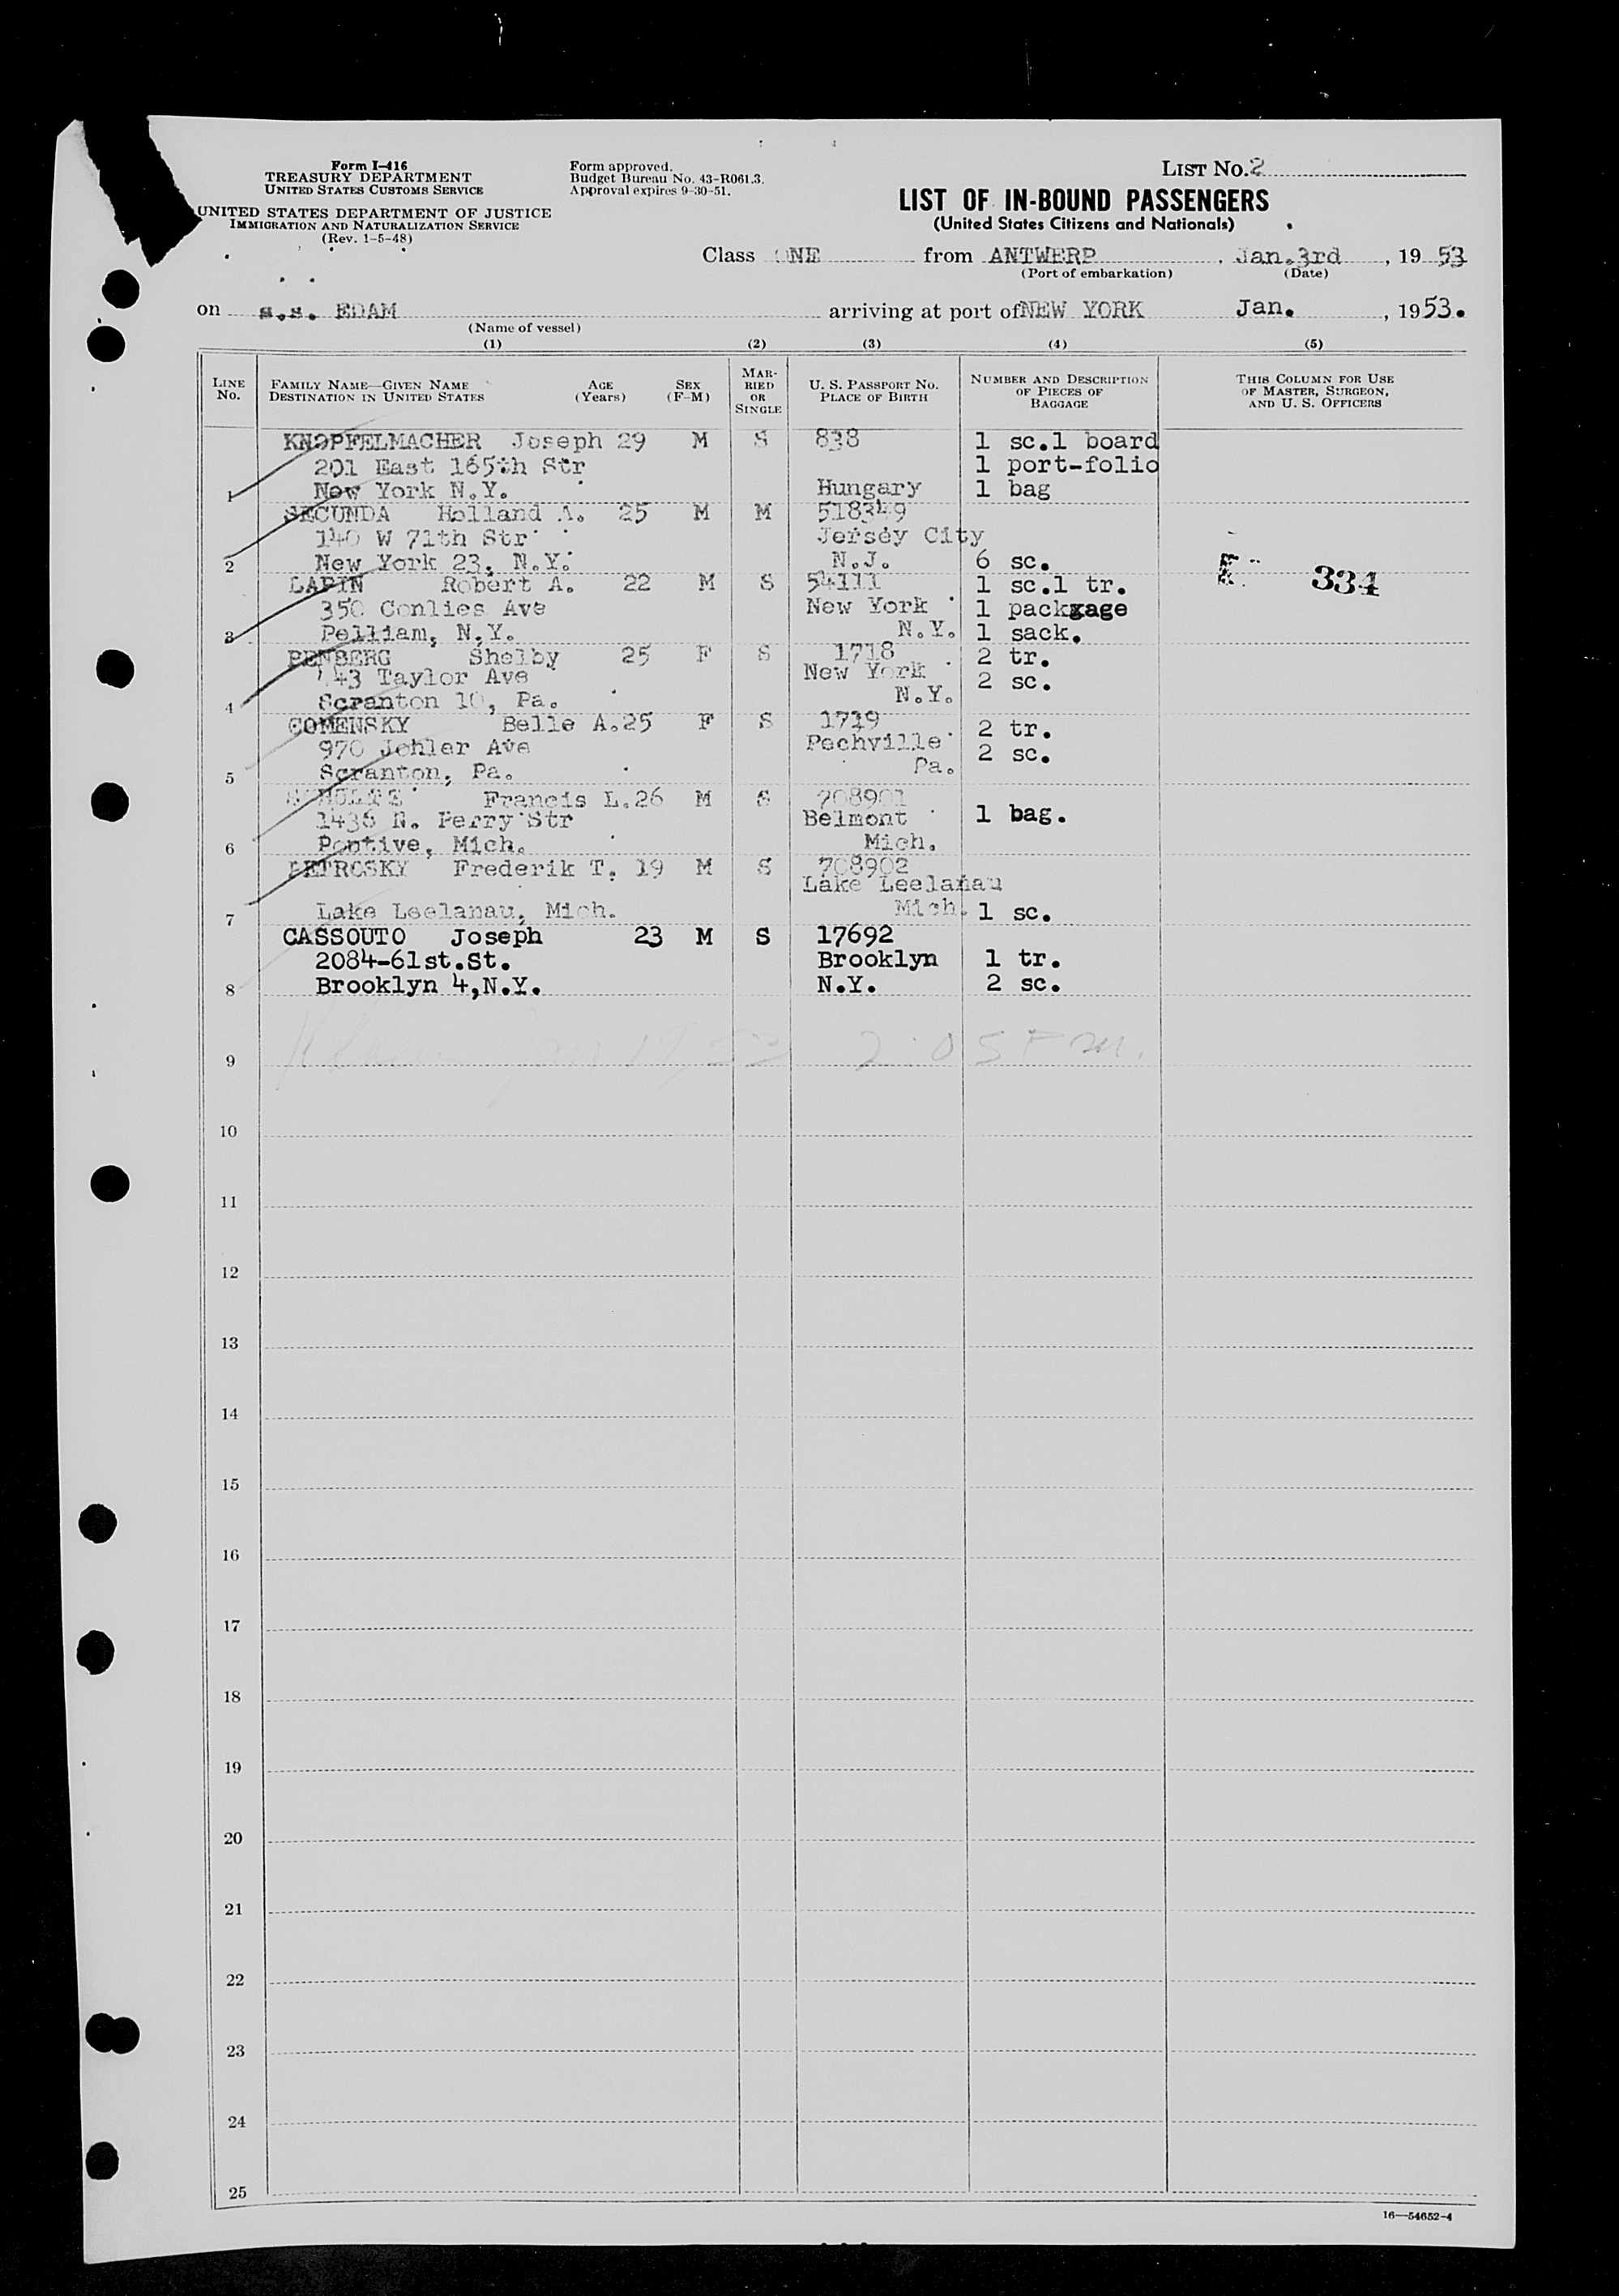 Form I-416
TREASURY DEPARTMENT
UNITED STATES CUSTOMS SERVICE
UNITED STATES DEPARTMENT OF JUSTICE
IMMIGRATION AND NATURALIZATION SERVICE
(Rev. 1-5-48)
Form approved.
Budget Bureau No. 43-R061.3.
Approval expires 9-30-51.
LIST No. 2
LIST OF IN-BOUND PASSENGERS
(United States Citizens and Nationals)
Class ONE from ANTWERP, Jan.3rd, 1953
(Port of embarkation) (Date)
on s.s. EDAM arriving at port of NEW YORK Jan., 1953.
(Name of vessel)
(1) (2) (3) (4) (5)
LINE No.
FAMILY NAME—GIVEN NAME AGE SEX
DESTINATION IN UNITED STATES (Years) (F-M)
MARRIED OR SINGLE
U. S. PASSPORT NO.
PLACE OF BIRTH
NUMBER AND DESCRIPTION OF PIECES OF BAGGAGE
THIS COLUMN FOR USE OF MASTER, SURGEON, AND U. S. OFFICERS
KNOPFELMACHER Joseph 29 M S 838 1 sc.1 board
201 East 165th Str 1 port-folio
1 New York N.Y. Hungary 1 bag
SECUNDA Holland A. 25 M M 518349
140 W 71th Str Jersey City
2 New York 23, N.Y. N.J. 6 sc.
LAPIN Robert A. 22 M S 54111 1 sc.1 tr.
350 Conlies Ave New York 1 packxage
334
3 Pelliam, N.Y. N.Y. 1 sack.
Shelby 25 F S 1718 2 tr.
43 Taylor Ave New York 2 sc.
4 Scranton 10, Pa. N.Y.
COMENSKY Belle A. 25 F S 1719 2 tr.
970 Jehler Ave Pechville 2 sc.
5 Scranton, Pa. Pa.
Francis L. 26 M S 708901
1436 N. Perry Str Belmont 1 bag.
6 Pontive, Mich. Mich.
PETROSKY Frederik T. 19 M S 708902
Lake Leelanau
7 Lake Leelanau, Mich. Mich. 1 sc.
CASSOUTO Joseph 23 M S 17692
2084-61st.St. Brooklyn 1 tr.
8 Brooklyn 4,N.Y. N.Y. 2 sc.
9 2:05 Pm.
10
11
12
13
14
15
16
17
18
19
20
21
22
23
24
25
16—54652-4